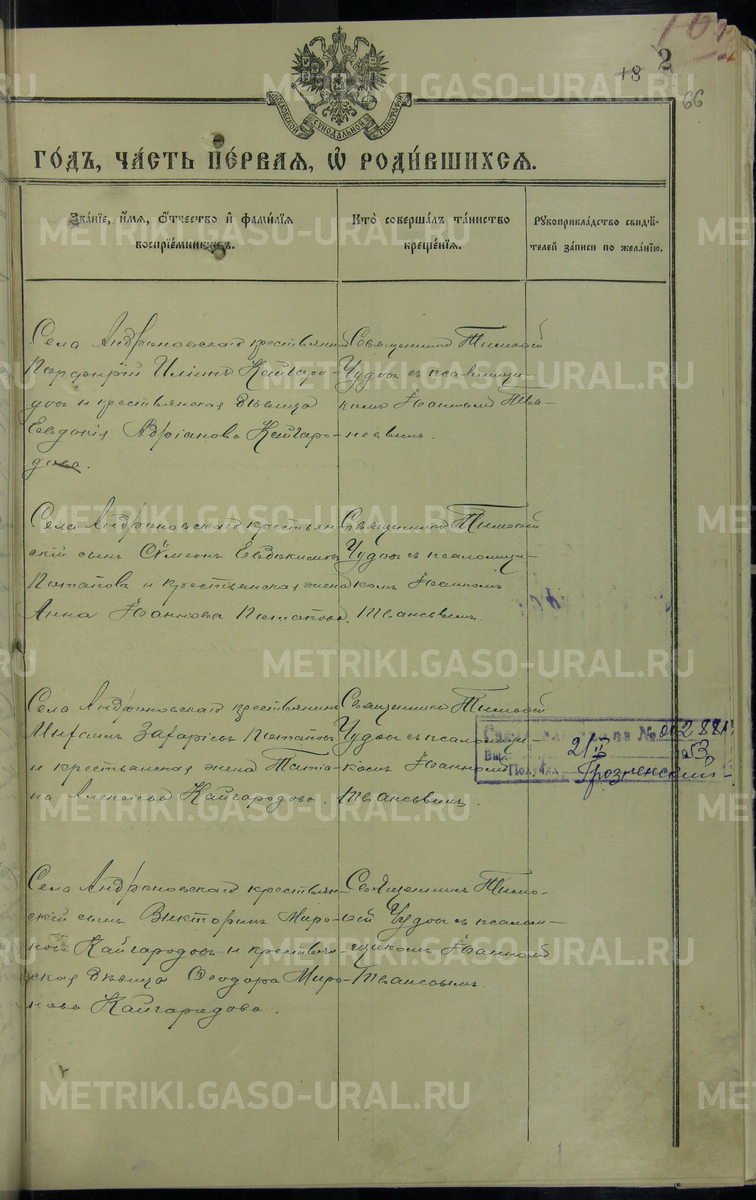 18 2
66
МОСКОВСКОЙ СѴНОДАЛЬНОЙ ТИПОГРАФІИ
ГО́ДЪ, ЧА́СТЬ ПЕ́РВАЯ, Ѡ РОДИ́ВШИХСЯ.
Зва́нїе, и́мя, ѻ҆́тчество и҆ фами́лїя
воспрїе́мниковъ.
Кто̀ соверша́лъ та́инство
креще́нїя.
Рꙋкоприкла́дство свидѣ́-
телей за́писи по жела́нїю.
Села Андроновскаго крестьянин
Парфирій Илiинъ Кайгоро-
довъ и крестьянская дѣвица
Евдокія Адріанова Кайгаро-
дова.
Священникъ Тимофей
Чудовъ съ псаломщи-
комъ Іоанномъ
Села Андроновскаго крестьян-
скій сынъ Сѵмеонъ Евдокимовъ
Потаповъ и крестьянская жена
Анна Іоаннова Потапова.
Священникъ Тимофей
Чудовъ съ псаломщи-
комъ Іоанномъ
Села Андроновскаго крестьянинъ
Захаріевъ Потаповъ
и крестьянская жена Татiа-
на Алексѣева Кайгородова.
Священникъ Тимофей
Чудовъ съ псаломщи-
комъ Іоанномъ
21
53
Грозненский
Села Андроновскаго крестьян-
скій сынъ Викторинъ Миро-
новъ Кайгародовъ и крестьян-
ская дѣвица Ѳеодора Миро-
нова Кайгородова.
Священникъ Тимо-
фей Чудовъ съ псалом-
щикомъ Іоанномъ
METRIKI.GASO-URAL.RU